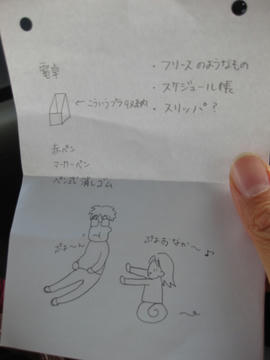 電卓
←こういうプラの収納
赤ペン
マーカーペン
ペン式消しゴム
・フリースのようなもの
・スケジュール帳
・スリッパ?
ぷよ〜ん
ぷよおなか〜♪